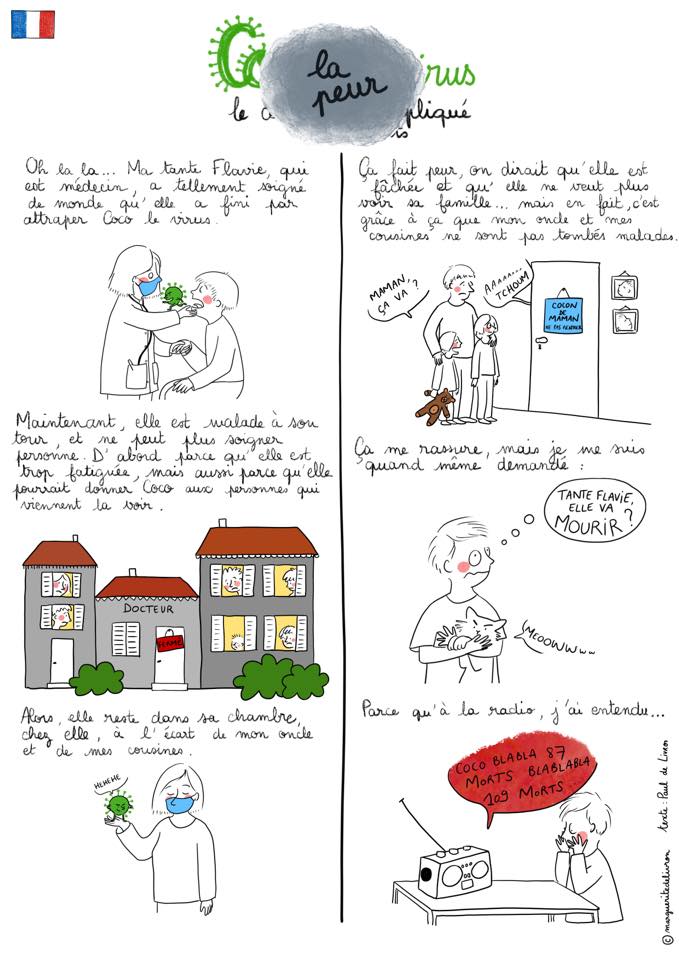 Co irus
la
peur
le c pliqué
Oh la la... Ma tante Flavie, qui
est médecin, a tellement soigné
de monde qu'elle a fini par
attraper Coco le virus.
Maintenant, elle est malade à son
tour, et ne peut plus soigner
personne. D'abord parce qu'elle est
trop fatiguée, mais aussi parce qu'elle
pourrait donner Coco aux personnes qui
viennent la voir.
DOCTEUR
FERMÉ
Alors, elle reste dans sa chambre,
chez elle, à l'écart de mon oncle
et de mes cousines.
HEHEHE
Ça fait peur, on dirait qu'elle est
fâchée et qu'elle ne veut plus
voir sa famille... mais en fait, c'est
grâce à ça que mon oncle et mes
cousines ne sont pas tombés malades.
MAMAN,
ÇA VA ?
AAAAA...
TCHOUM
COLON
DE
MAMAN
NE PAS RENTRER
Ça me rassure, mais je me suis
quand même demandé :
TANTE FLAVIE,
ELLE VA
MOURIR ?
MEOOWWww
Parce qu'à la radio, j'ai entendu...
COCO BLABLA 87
MORTS BLABLABLA
109 MORTS...
© margueritedelivron texte : Paul de Livron